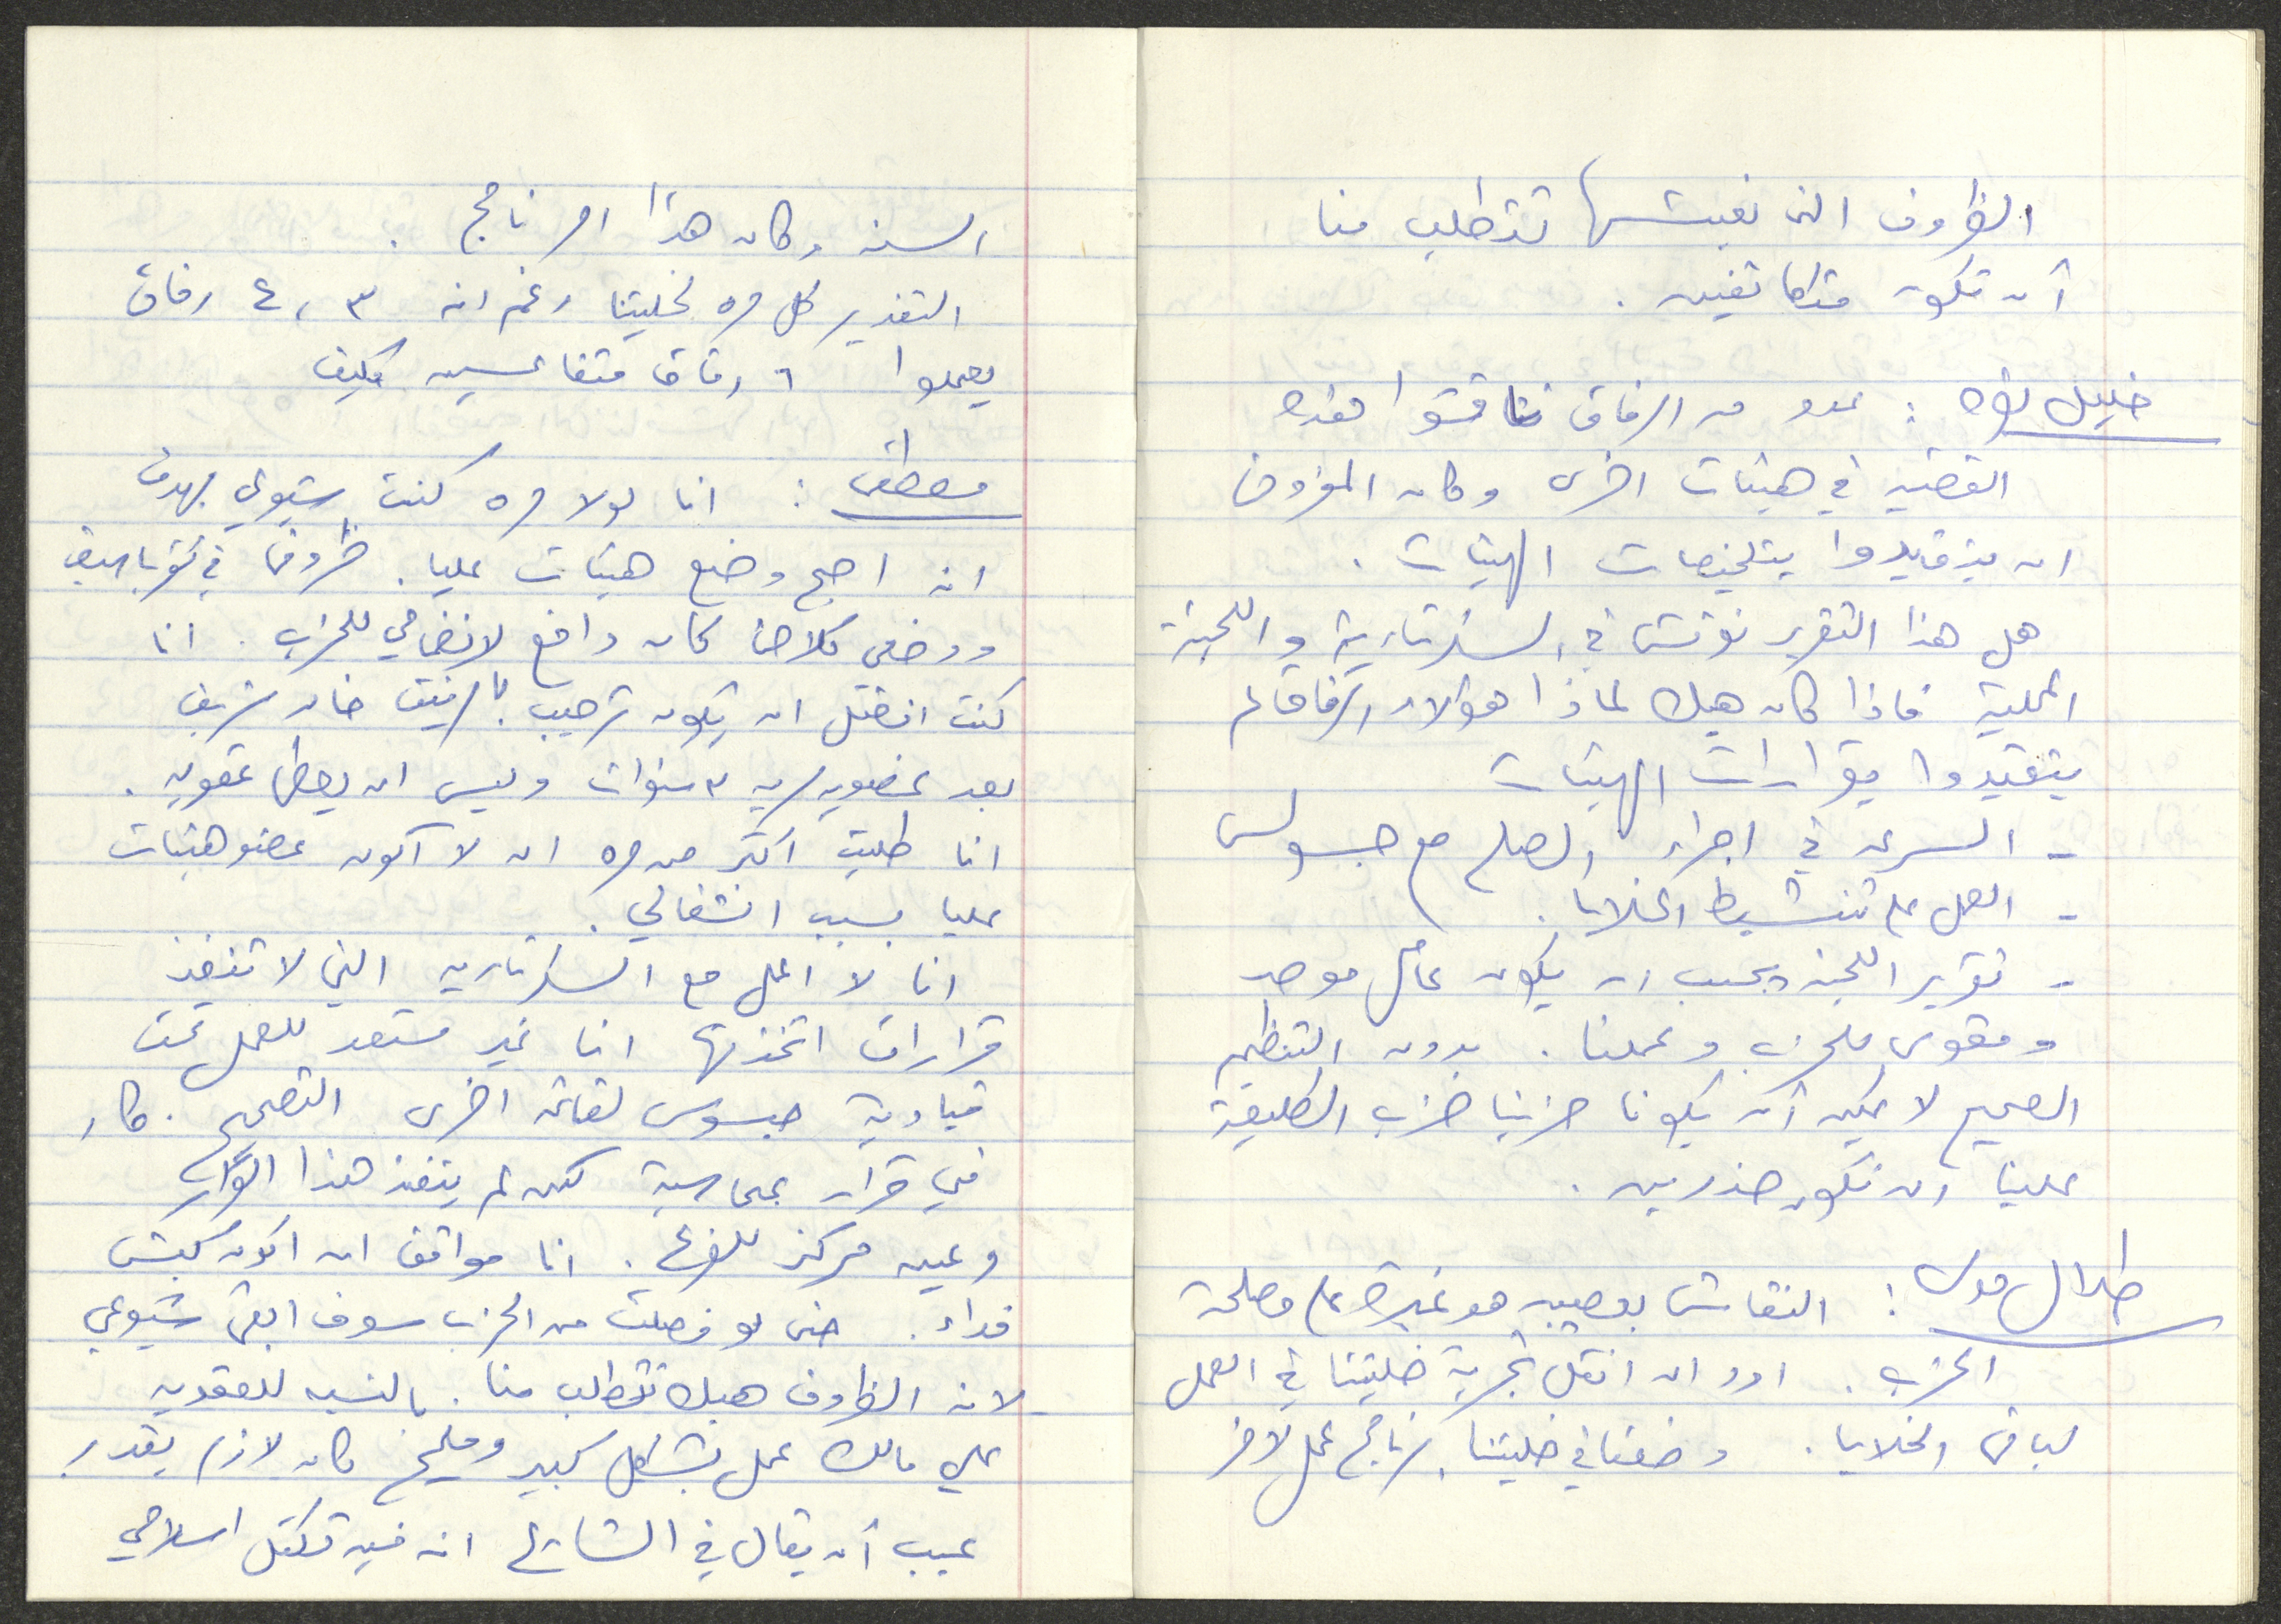 الظروف التي نعيشها تتطلب منا
أن نكون متكاتفين .
خليل نقره : عدد من الرفاق ناقشوا هذه
القضيه في هيئات اخرى وكان المفروض
ان يتقيدوا بتلخيصات الهيئات .
هل هذا التقرير نوقش في السكرتارية واللجنة
المحلية فاذا كان هيك لماذا هؤلاء الرفاق لم
يتقيدوا بقرارات الهيئات
- السرعه في اجراء الصلح مع جبسوس
- العمل على تنشيط الخلايا .
- تقرير اللجنه يجب ان يكون عامل موحد
ومقوي للحزب وعملنا . بدون التنظيم
الصحيح لا يمكن أن يكونا حزبنا حزب الطليعة
علينا ان نكون حذرين .
طلال موسى : النقاش بعصبيه هو غيرة على مصلحة
الحزب . اود ان انقل تجربة خليتنا في العمل
لباقي الخلايا . وضعنا في خليتنا برنامج عمل لآخر
السنه وكان هذا البرنامج .
التقدير كل مره لخليتنا رغم انه ٣ ، ٤ رفاق
يعملوا ٦ رفاق متقاعسين فكيف
مصطفى : انا لولا مره كنت شيوعي بهدف
انه اصح وضع هيئات عليا . ظروف في
ووضعي كلاجئ كان دافع لانضمامي للحزب . انا
كنت افضل ان يكون ترحيب بالرفيق خالد شريف
بعد عضويه ٣ سنوات وليس ان يعطى عقوبه .
انا طلبت اكثر من مره ان لا أكون عضو هيئات
عليا بسبب انشغالي .
انا لا اعمل مع السكرتاريه التي لا تنفذ
قرارات اتخذتها انا غير مستعد للعمل تحت
قيادية جبسوس لقائمه اخرى التصحيح . كان
في قرار بمحاسبة لكن لم ينفذ هذا القرار
وعين مركز للفرع . انا موافق ان اكون كبش
فداء . حتى لو فصلت من الحزب سوف ابقى شيوعي
لانه الظروف هيك تتطلب منا . بالنسبه للعقوبه
علي مالك عمل بشكل كبير ومليح كان لازم يقدر
عيب أن يقال في الشارع انه فيه تكتل اسلامي